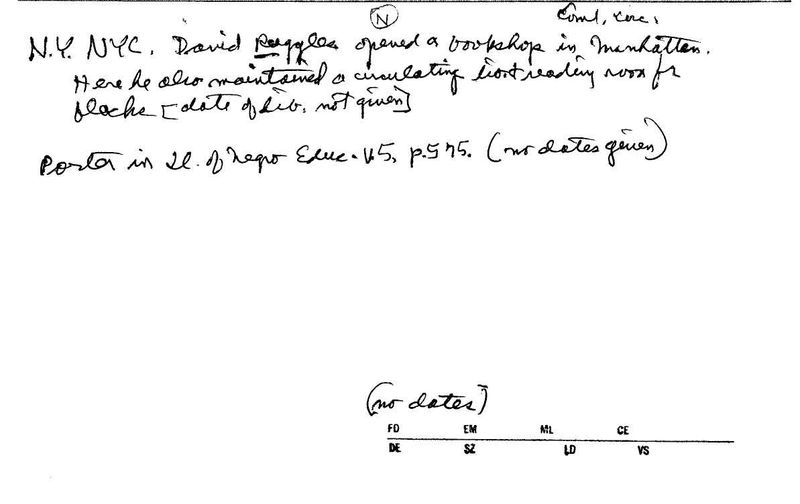 (N) Coml, circ,
N.Y. NYC. David Ruggles opened a bookshop in Manhattan.
Here he also maintained a circulating lib and reading room for
blacks [date of lib. not given]
Porter in Jl. of Negro Educ. V.5, p.575. (no dates given)
(no dates)
FD EM ML CE
DE SZ LD VS